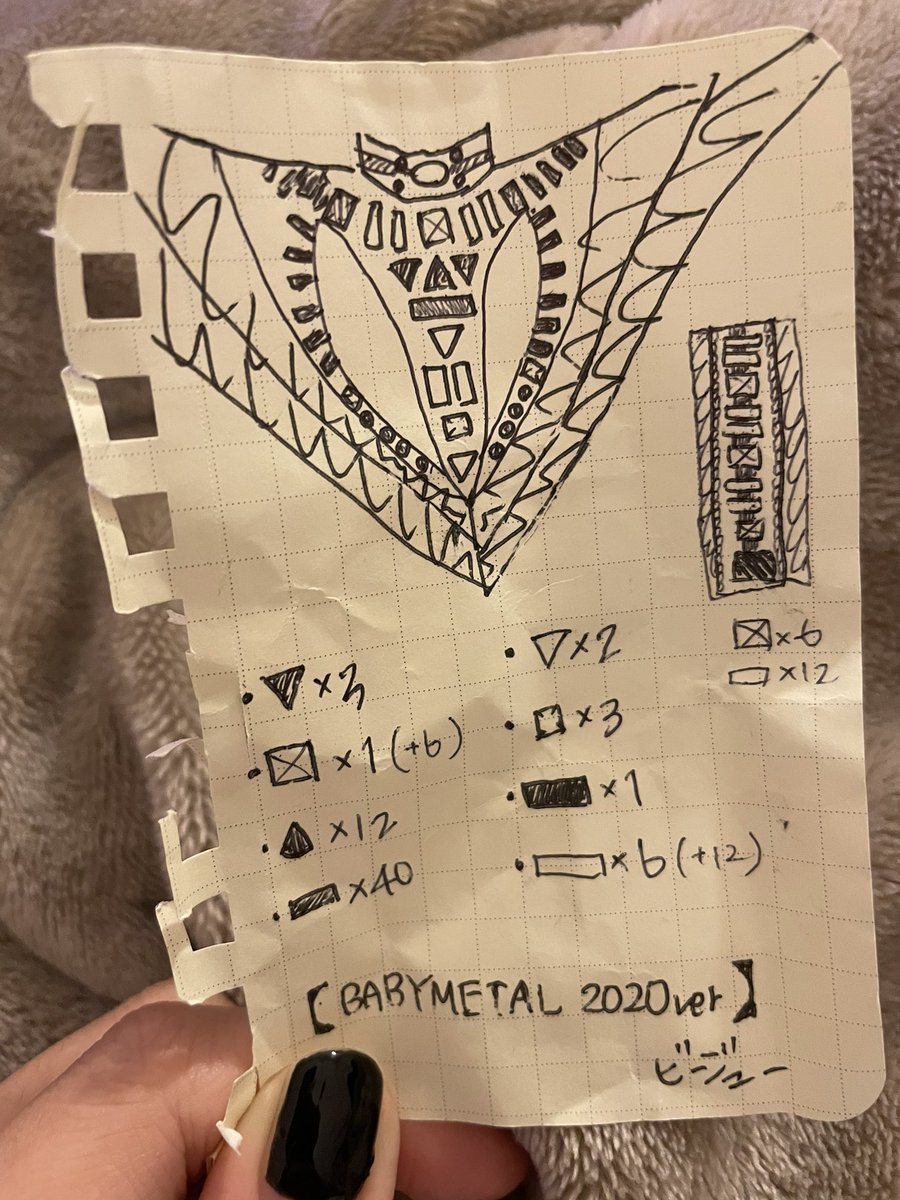 ×6
×12
×3
×1(+6)
×12
×40
×2
×3
×1
×6(+12)
【BABYMETAL 2020ver】
ビジュー